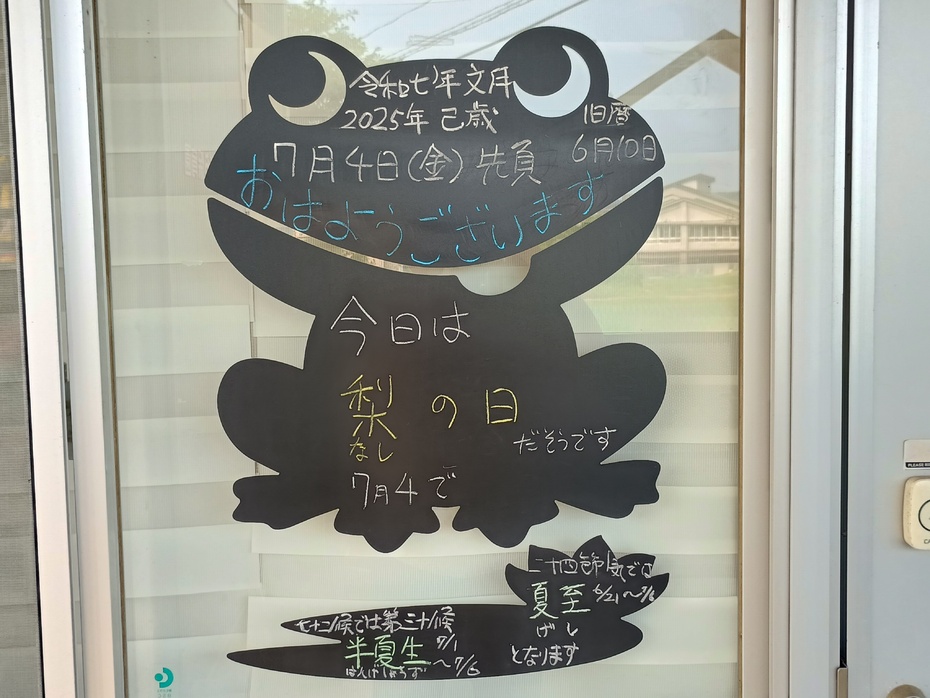 令和七年文月
2025年 己歳
旧暦
6月10日
7月4日(金) 先負
おはようございます
今日は
梨の日
なし
だそうです
7月4で
二十四節気では
夏至 6/21〜7/6
げし
となります
七十二候では第三十候
半夏生 7/1〜7/6
はんげしょうず